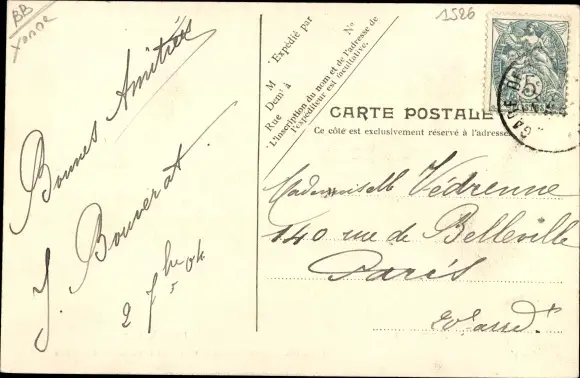 BB
Yonne
1526
Bonnes Amitiés
J. Bouverat
2 7bre 04
Expédié par
M
Demt à
Rue
No
L'inscription du nom et de l'adresse de
l'expéditeur est facultative.
CARTE POSTALE
Ce côté est exclusivement réservé à l'adresse.
5
GARE DE
Mademoiselle Védrenne
140 rue de Belleville
Paris